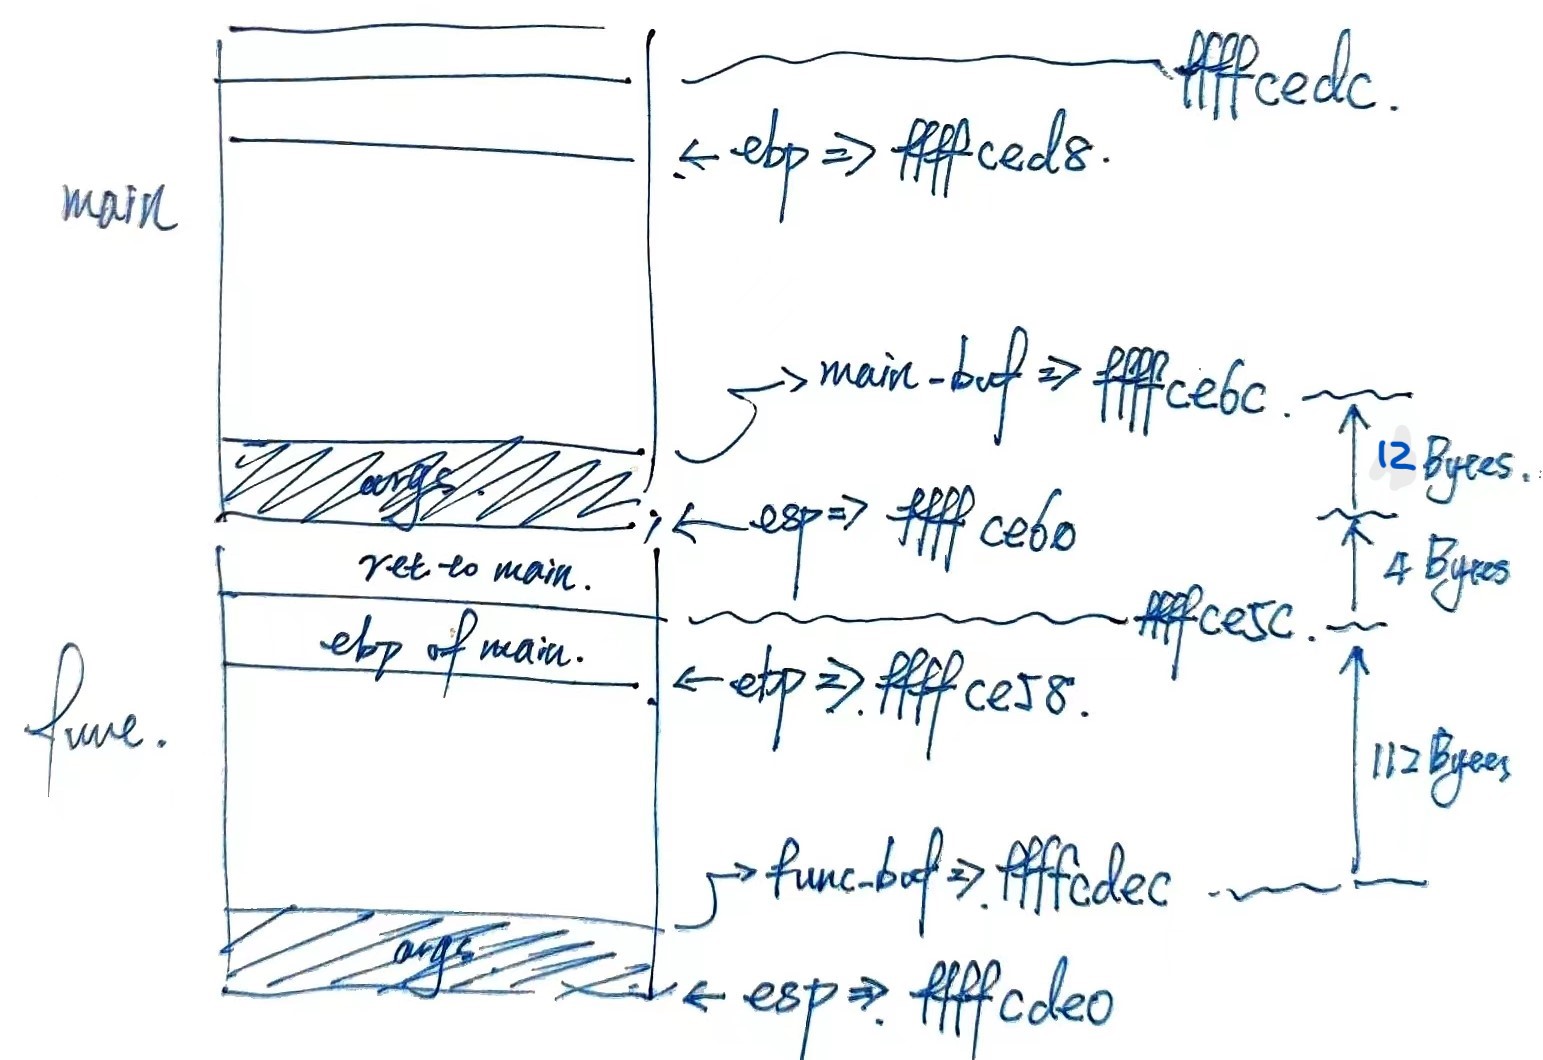 ffffcedc.
← ebp => ffffced8.
main
main-buf => ffffce6c.
12 Bytes.
args.
← esp => ffffce60
4 Bytes
ret to main.
ffffce5c.
ebp of main.
← ebp =>. ffffce58.
func.
112 Bytes
func-buf =>. ffffcdec
args
← esp =>. ffffcde0